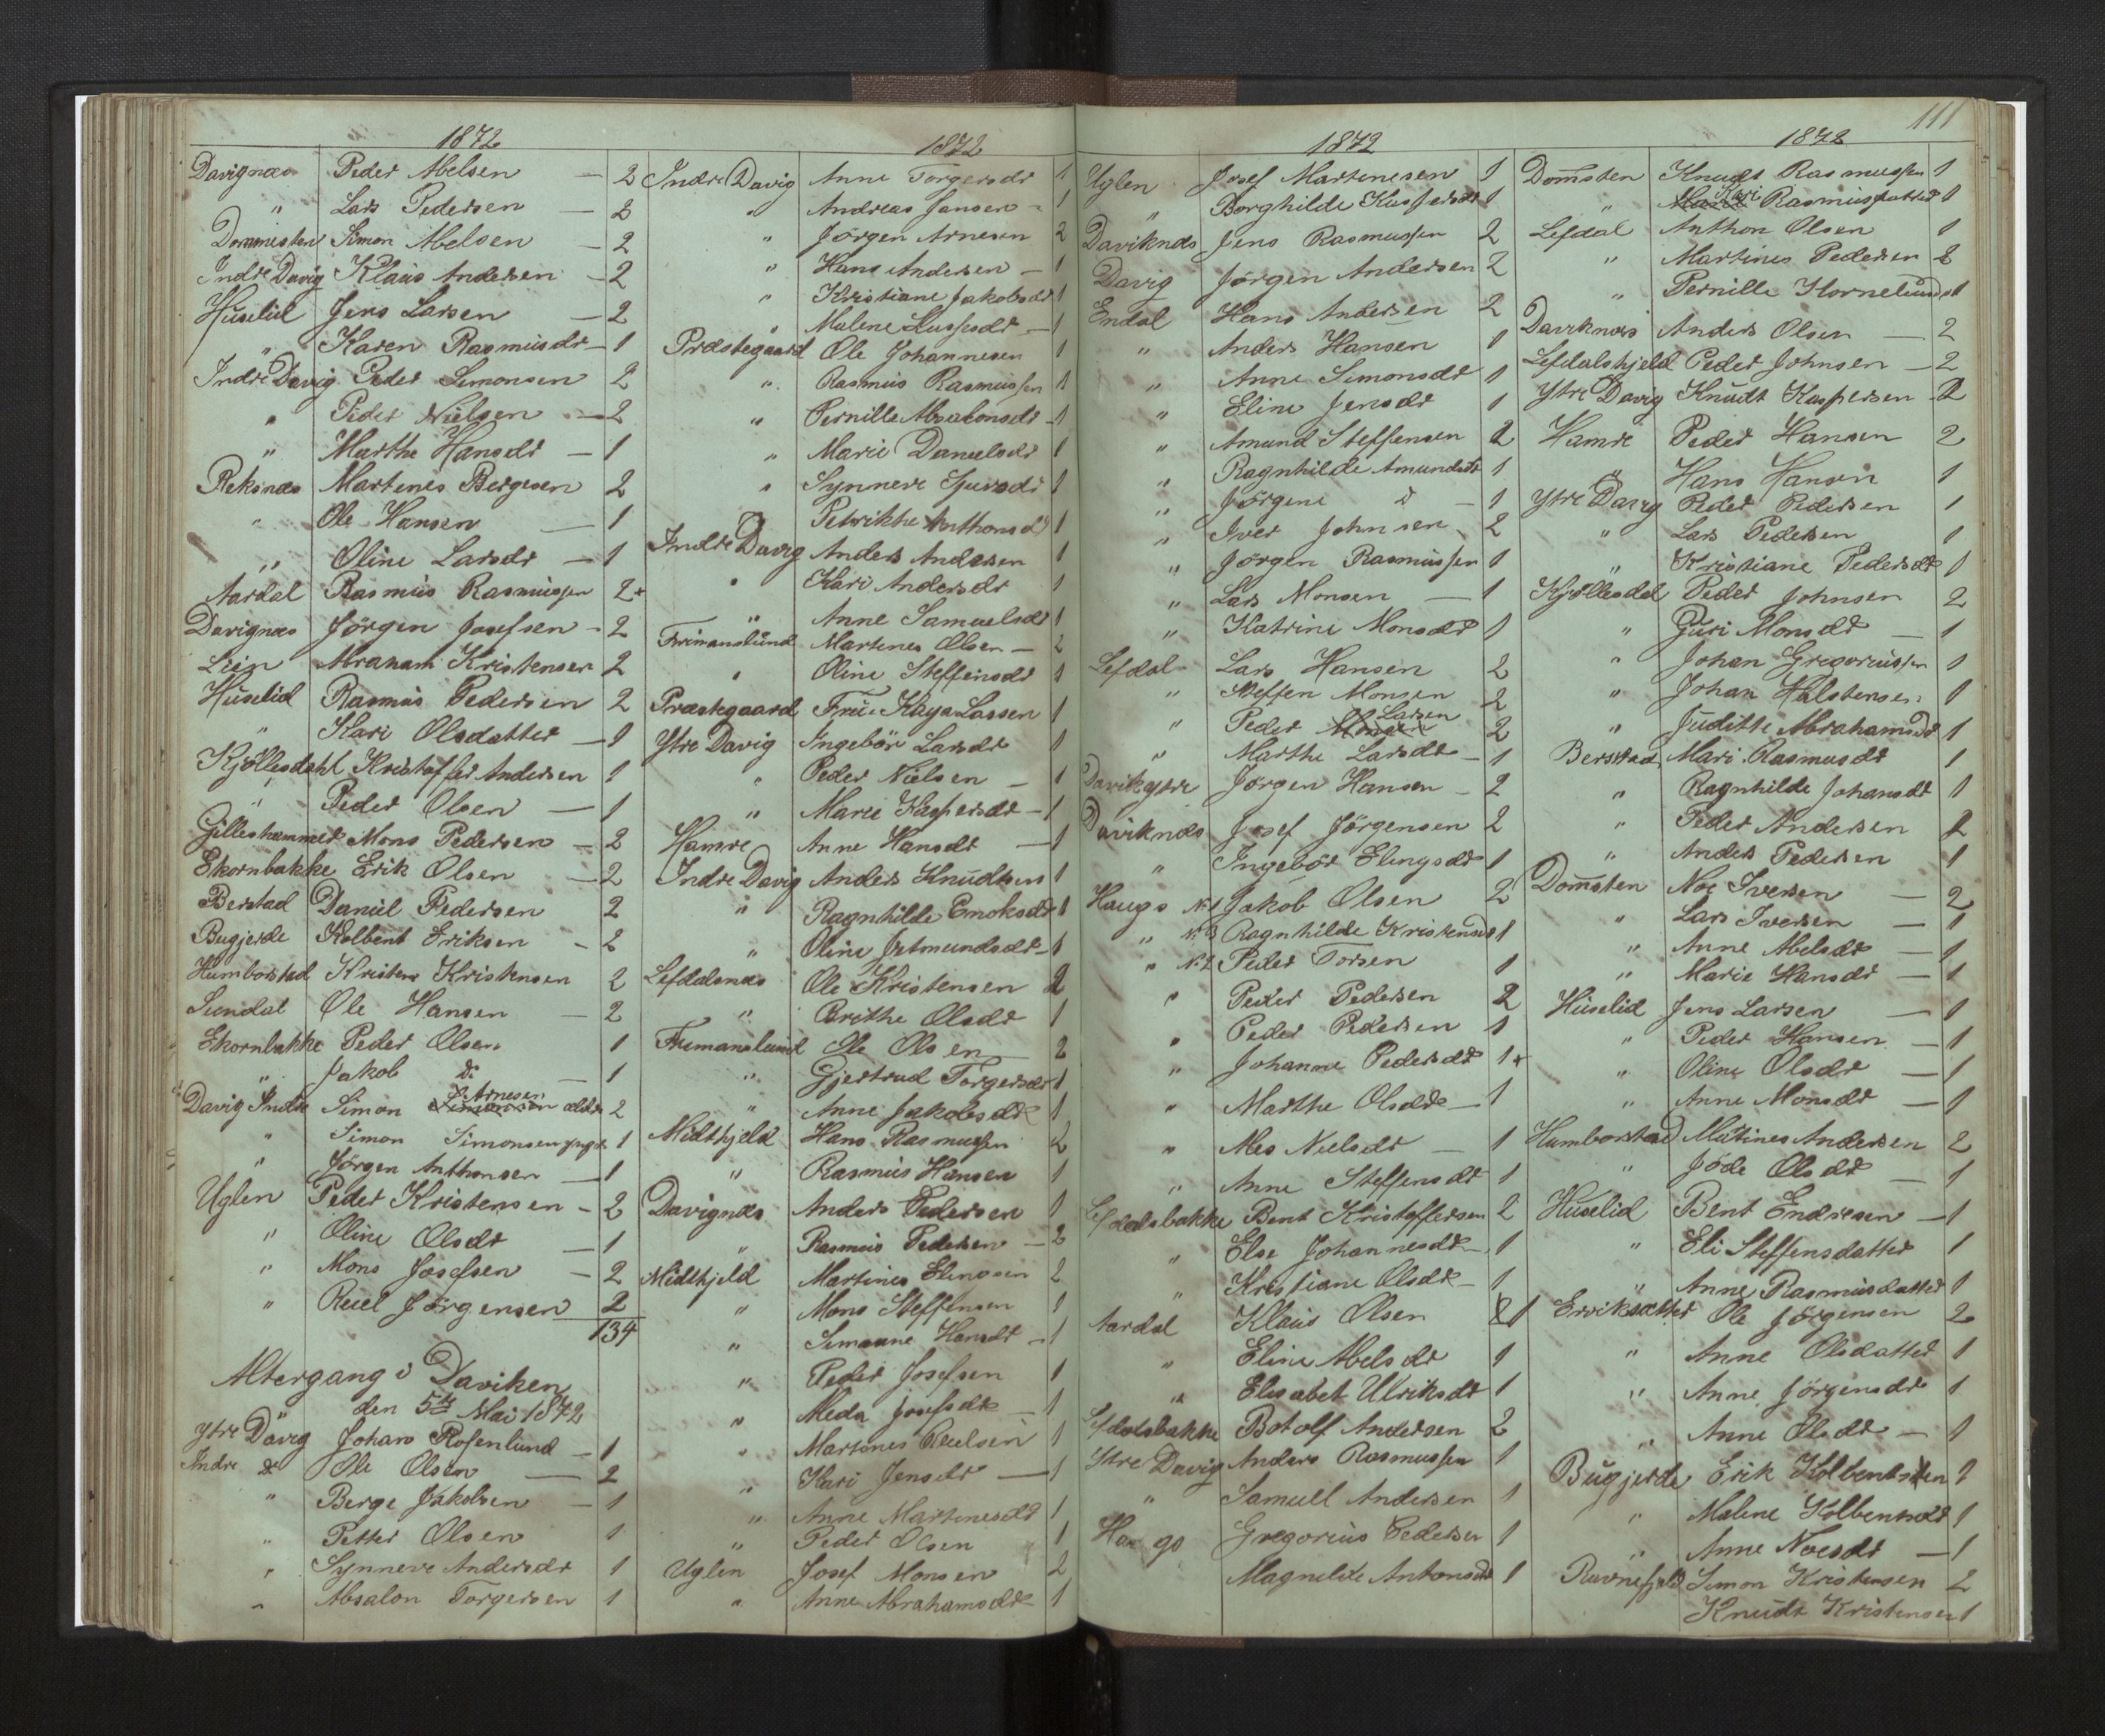 1872
Davignæs Peder Abelsen — 2
" Lars Pedersen — 2
Dommesten Simon Abelsen — 2
Indre Davig Klaus Andersen — 2
Huselid Jens Larsen — 2
" Karen Rasmusdt — 1
Indre Davig Peder Simonsen 2
" Peder Nielsen — 2
" Marthe Hansdt — 1
Reksnæs Martines Bergesen 2
" Ole Hansen — 1
" Oline Larsdt — 1
Aardal Rasmus Rasmussen 2+
Davignæs Jörgen Josefsen - 2
Lien Abraham Kristensen 2
Huselid Rasmus Pedersen 2
" Kari Olsdatter — 1
Kjöllesdahl Kristoffer Andersen 1
" Peder Olsen — 1
Gilleshammer Mons Pedersen — 2
Ekornbakke Erik Olsen — 2
Berstad Daniel Pedersen 2
Bugjerde Kolbent Eriksen - 2
Humborstad Kristen Kristensen 2
Sundal Ole Hansen — 2
Ekornbakke Peder Olsen 1
" Jakob do — 1
Davig Indre Simon Arnesen ældr 2
" Simon Simonsen yngr 1
" Jörgen Anthonsen — 1
Uglen Peder Kristensen - 2
" Oline Olsdt — 1
" Mons Josefsen — 2
" Reiel Jörgensen 2
134
Altergang i Daviken
den 5te Mai 1872
Ytre Davig Johan Rosenlund — 1
Indre do Ole Olsen — 2
" Berge Jakobsen — 1
" Petter Olsen 1
" Synneve Andersdt 1
" Absalon Torgersen 1
1872
Indre Davig Anne Torgersdt 1
" Andreas Jansen - 1
" Jörgen Arnesen 2
" Hans Andersen — 1
" Kristiane Jakobsdt 1
" Malene — 1
Præstegaard Ole Johannesen 1
" Rasmus Rasmussen 1
" Pernille Absalonsdt 1
" Marie Danielsdt 1
" Synneve Sjursdt 1
" Petrikke Anthonsd 1
Indre Davig Anders Andersen 1
" Kari Andersdt 1
" Anne Samuelsdt 1
Frimanslund Martines Olsen — 2
" Oline Steffensdt 1
Præstegaard Frue Kaya Lassen 1
Ytre Davig Ingebör Larsdt 1
" Peder Nielsen — 1
" Marie Kaspersdt — 1
Hamre Anne Hansdt — 1
Indre Davig Anders Knudtsen 1
" Ragnhilde Enoksdt 1
" Oline Jetmundsdt — 1
Lefdalsnæs Ole Kristensen 2
" Brithe Olsdt 1
Frimanslund Ole Olsen 2
" Gjertrud Torgersdt 1
" Anne Jakobsdt 1
Midthjeld Hans Rasmussen 2
" Rasmus Hansen 1
Davignæs Anders Pedersen 1
" Rasmus Pedersen — 2
Midthjeld Martines Elingsen 2
" Mons Steffensen 1
" Simonne Hansdt — 1
" Peder Josefsen 1
" Meda Josefsdt — 1
" Martines Reielsen 1
" Kari Jensdt — 1
" Anne Martinesdt 1
" Peder Olsen 1
Uglen Josef Monsen 2
" Anne Abrahamsdt 1
111
1872
Uglen Josef Martinesen 1
" Borghilde Kaspersdt 1
Daviknæs Jens Rasmussen 2
Davig Jörgen Andersen 2
Endal Hans Andersen 2
" Anders Hansen 1
" Anne Simonsdt 1
" Eline Jensdt 1
" Amund Steffensen 2
" Ragnhilde Amundsdt 1
" Jörgine d — 1
" Iver Johnsen 2
" Jörgen Rasmussen 1
" Lars Monsen — 1
" Katrine Monsdt 1
Lefdal Lars Hansen 2
" Steffen Monsen 2
" Peder Larsen 2
" Marthe Larsdt — 1
Davik ytre Jörgen Hansen — 2
Daviknæs Josef Jörgensen 2
" Ingebör Elingsdt 1
Haugs N.1 Jakob Olsen 2
" N.3 Ragnhilde Kristensdt 1
" N.2 Peder Torsen 1
" Peder Pedersen 2
" Peder Pedersen 1
" Johanne Pedersdt 1+
" Marthe Olsdt — 1
" Mes Nielsdt — 1
" Anne Steffensdt 1
Lefdalsbakke Bent Kristoffersen 2
" Else Johannesdt 1
" Kristiane Olsdt — 1
Aardal Klaus Olsen 1
" Eline Abelsdt 1
" Elisabet Ulriksdt 1
Lefdalsbakke Botolf Andersen 2
Ytre Davig Anders Rasmussen 1
" Samuel Andersen 1
Haugs Gregorius Pedersen 1
Magnilde Antonsdt 1
1872
Domsten Knudt Rasmussen 1
" Kari Rasmusdatter 1
Lefdal Anthon Olsen 1
" Martines Pedersen 2
" Pernille Korneliusdt 1
Daviknæs Anders Olsen — 2
Lefdalshjeld Peder Johnsen — 2
Ytre Davig Knudt Kaspersen 2
Hamre Peder Hansen 2
" Hans Hansen 1
Ytre Davig Peder Pedersen 1
" Lars Pedersen 1
" Kristiane Pedersdt 1
Kjöllesdal Peder Johnsen 2
" Guri Monsdt — 1
" Johan Gregoriussen 1
" Johan Halstensen 1
" Juditte Abrahamsdt 1
Berstad Mari Rasmusdt 1
" Ragnhilde Johansdt 1
" Peder Andersen 2
" Anders Pedersen 1
Domsten Noe Iversen — 2
" Lars Iversen — 1
" Anne Abelsdt — 1
" Marie Hansdt — 1
Huselid Jens Larsen — 1
" Peder Hansen — 1
" Oline Olsdt — 1
" Anne Monsdt — 1
Humborstad Andersen 2
" Jöde Olsdt — 1
Huselid Bent Endresen — 1
" Eli Steffensdatter 1
" Anne Rasmusdatter 1
Erviksætter Ole Jörgensen 2
" Anne Olsdatter 1
" Anne Jörgensdt 1
" Anne Olsdt — 1
Bugjerde Erik Kolbentsen 2
" Malene Kolbentsdt 1
" Anne Noesdt — 1
Ravnefjeld Simon Kristensen 2
Knudt Kristensen 1